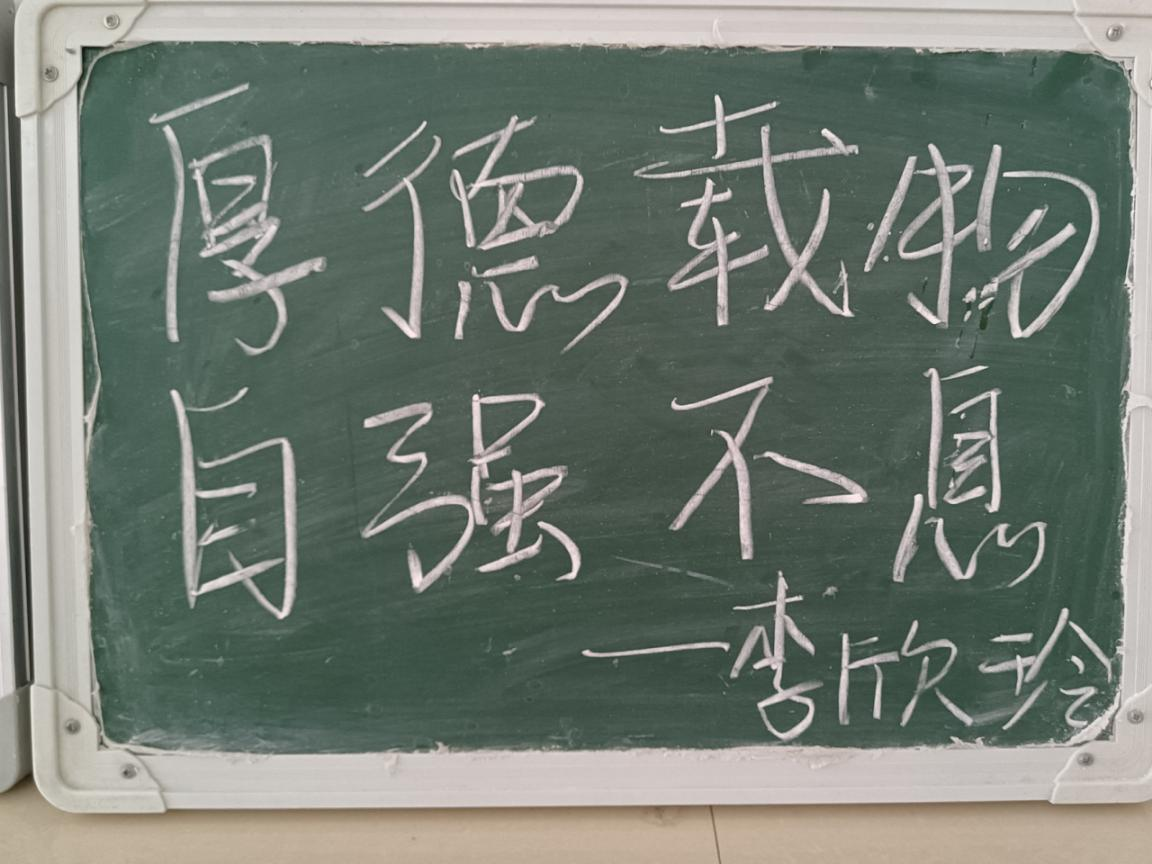 厚德载物
自强不息
—李欣玲